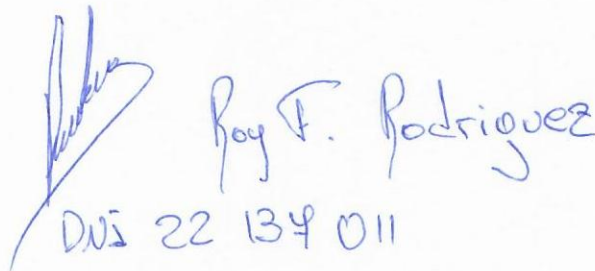 Roy F. Rodriguez
DNI 22 137 011